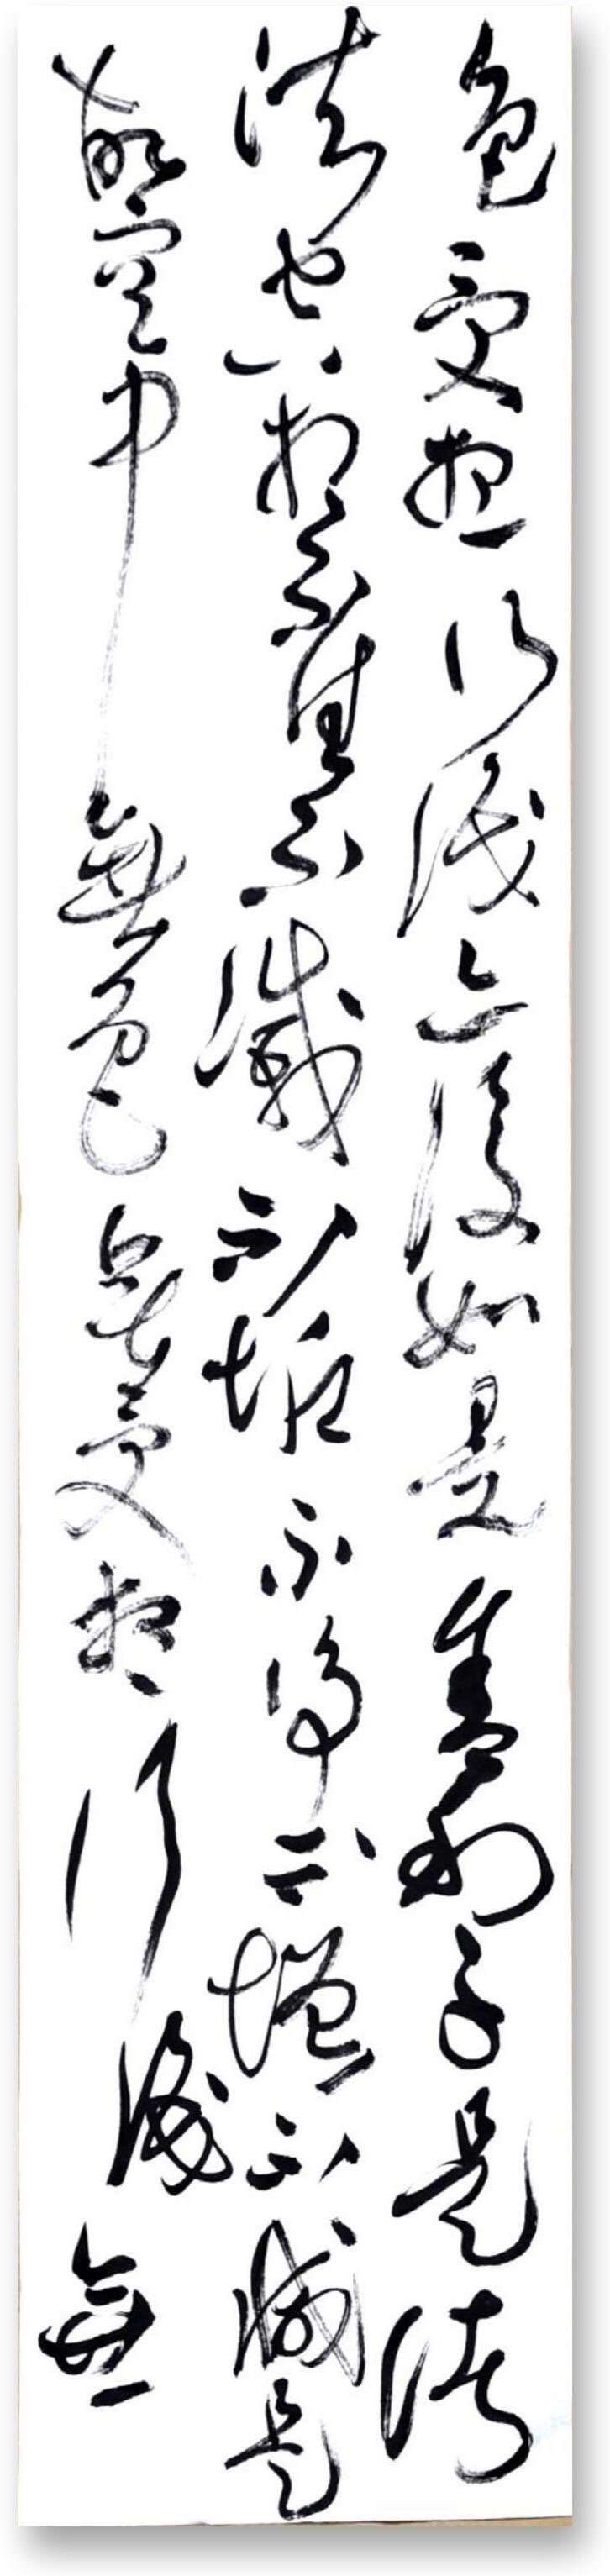 色受想行識亦復如是舍利子是諸
法空相不生不滅不垢不淨不增不減是
故空中無色無受想行識無